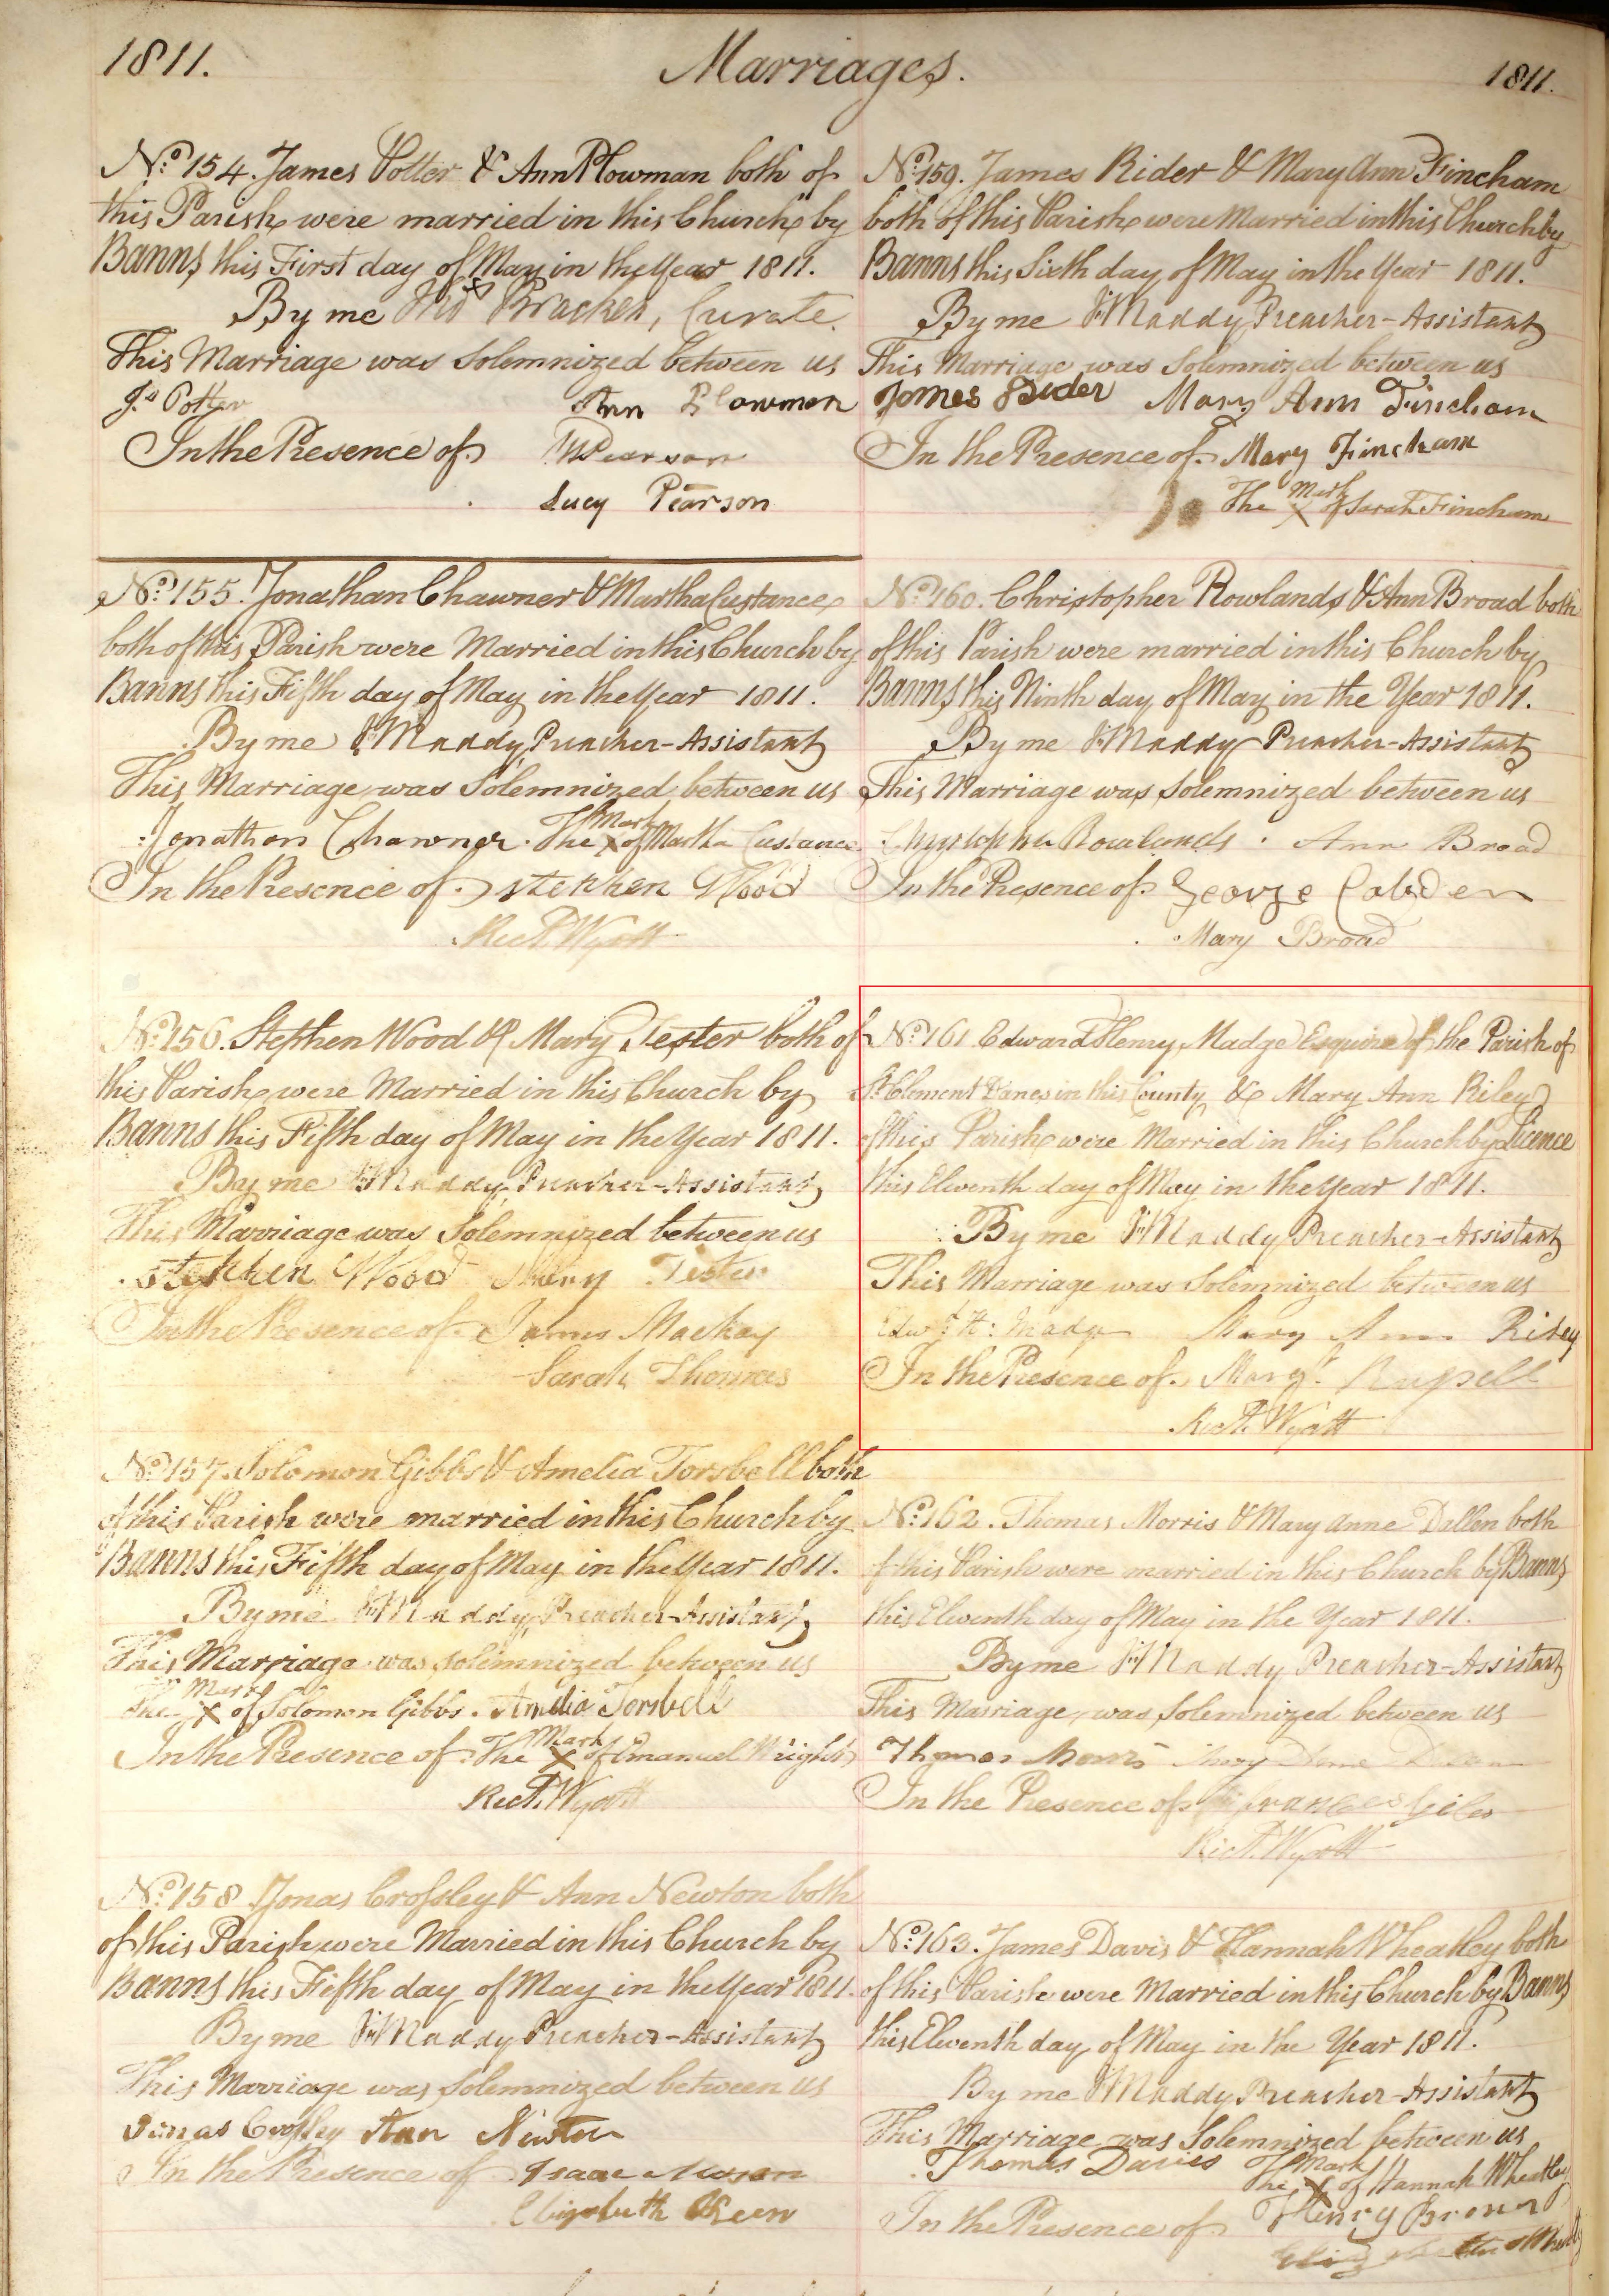 1811.
Marriages.
1811.
No. 154. James Potter & Ann Plowman both of
this Parish were married in this Church by
Banns this First day of May in the Year 1811.
By me Bracken, Curate.
This Marriage was Solemnized between us
Js Potter Ann Plowman
In the Presence of Pearson
Lucy Pearson
No. 155. Jonathan Chawner & Martha Custance
both of this Parish were Married in this Church by
Banns this Fifth day of May in the Year 1811.
By me Maddy, Preacher-Assistant
This Marriage was Solemnized between us
Jonathan Chawner. The Mark X of Martha Custance
In the Presence of Stephen Wood
Wyatt
No. 156. Stephen Wood & Mary Tester both of
this Parish were Married in this Church by
Banns this Fifth day of May in the Year 1811.
By me Maddy, Preacher-Assistant
This Marriage was Solemnized between us
Stephen Wood Mary Tester
In the Presence of James Mackay
Sarah Thomas
No. 157. Solomon Gibbs & Amelia Torsbell both
of this Parish were married in this Church by
Banns this Fifth day of May in the Year 1811.
By me Maddy, Preacher-Assistant
This Marriage was Solemnized between us
The Mark X of Solomon Gibbs. Amelia Torsbell
In the Presence of The Mark X of Emanuel Wright
Wyatt
No. 158 Jonas Crossley & Ann Newton both
of this Parish were Married in this Church by
Banns this Fifth day of May in the Year 1811.
By me Maddy Preacher-Assistant
This Marriage was Solemnized between us
Jonas Crossley Ann Newton
In the Presence of Isaac
Elizabeth
No. 159. James Rider & Mary Ann Fincham
both of this Parish were Married in this Church by
Banns this Sixth day of May in the Year 1811.
By me Maddy Preacher-Assistant
This Marriage was Solemnized between us
James Rider Mary Ann Fincham
In the Presence of Mary Fincham
The Mark X of Sarah Fincham
No. 160. Christopher Rowlands & Ann Broad both
of this Parish were married in this Church by
Banns this Ninth day of May in the Year 1811.
By me Maddy Preacher-Assistant
This Marriage was Solemnized between us
Christopher Rowlands. Ann Broad
In the Presence of George Cobden
Mary Broad
No. 161 Edward Henry Madge Esquire of the Parish of
St Clement Danes in this County & Mary Ann Riley
of this Parish were Married in this Church by Licence
this Eleventh day of May in the Year 1811.
By me Maddy Preacher-Assistant
This Marriage was Solemnized between us
Edwd H: Madge Mary Ann Riley
In the Presence of Margt Russell
Wyatt
No. 162. Thomas Morris & Mary Anne Dallen both
of this Parish were married in this Church by Banns
this Eleventh day of May in the Year 1811.
By me Maddy Preacher-Assistant
This Marriage was Solemnized between us
Thomas Morris Mary
In the Presence of Frances Giles
Wyatt
No. 163. James Davis & Hannah Wheatley both
of this Parish were Married in this Church by Banns
this Eleventh day of May in the Year 1811.
By me Maddy Preacher-Assistant
This Marriage was Solemnized between us
Thomas Davies The Mark X of Hannah Wheatley
In the Presence of Henry Brown